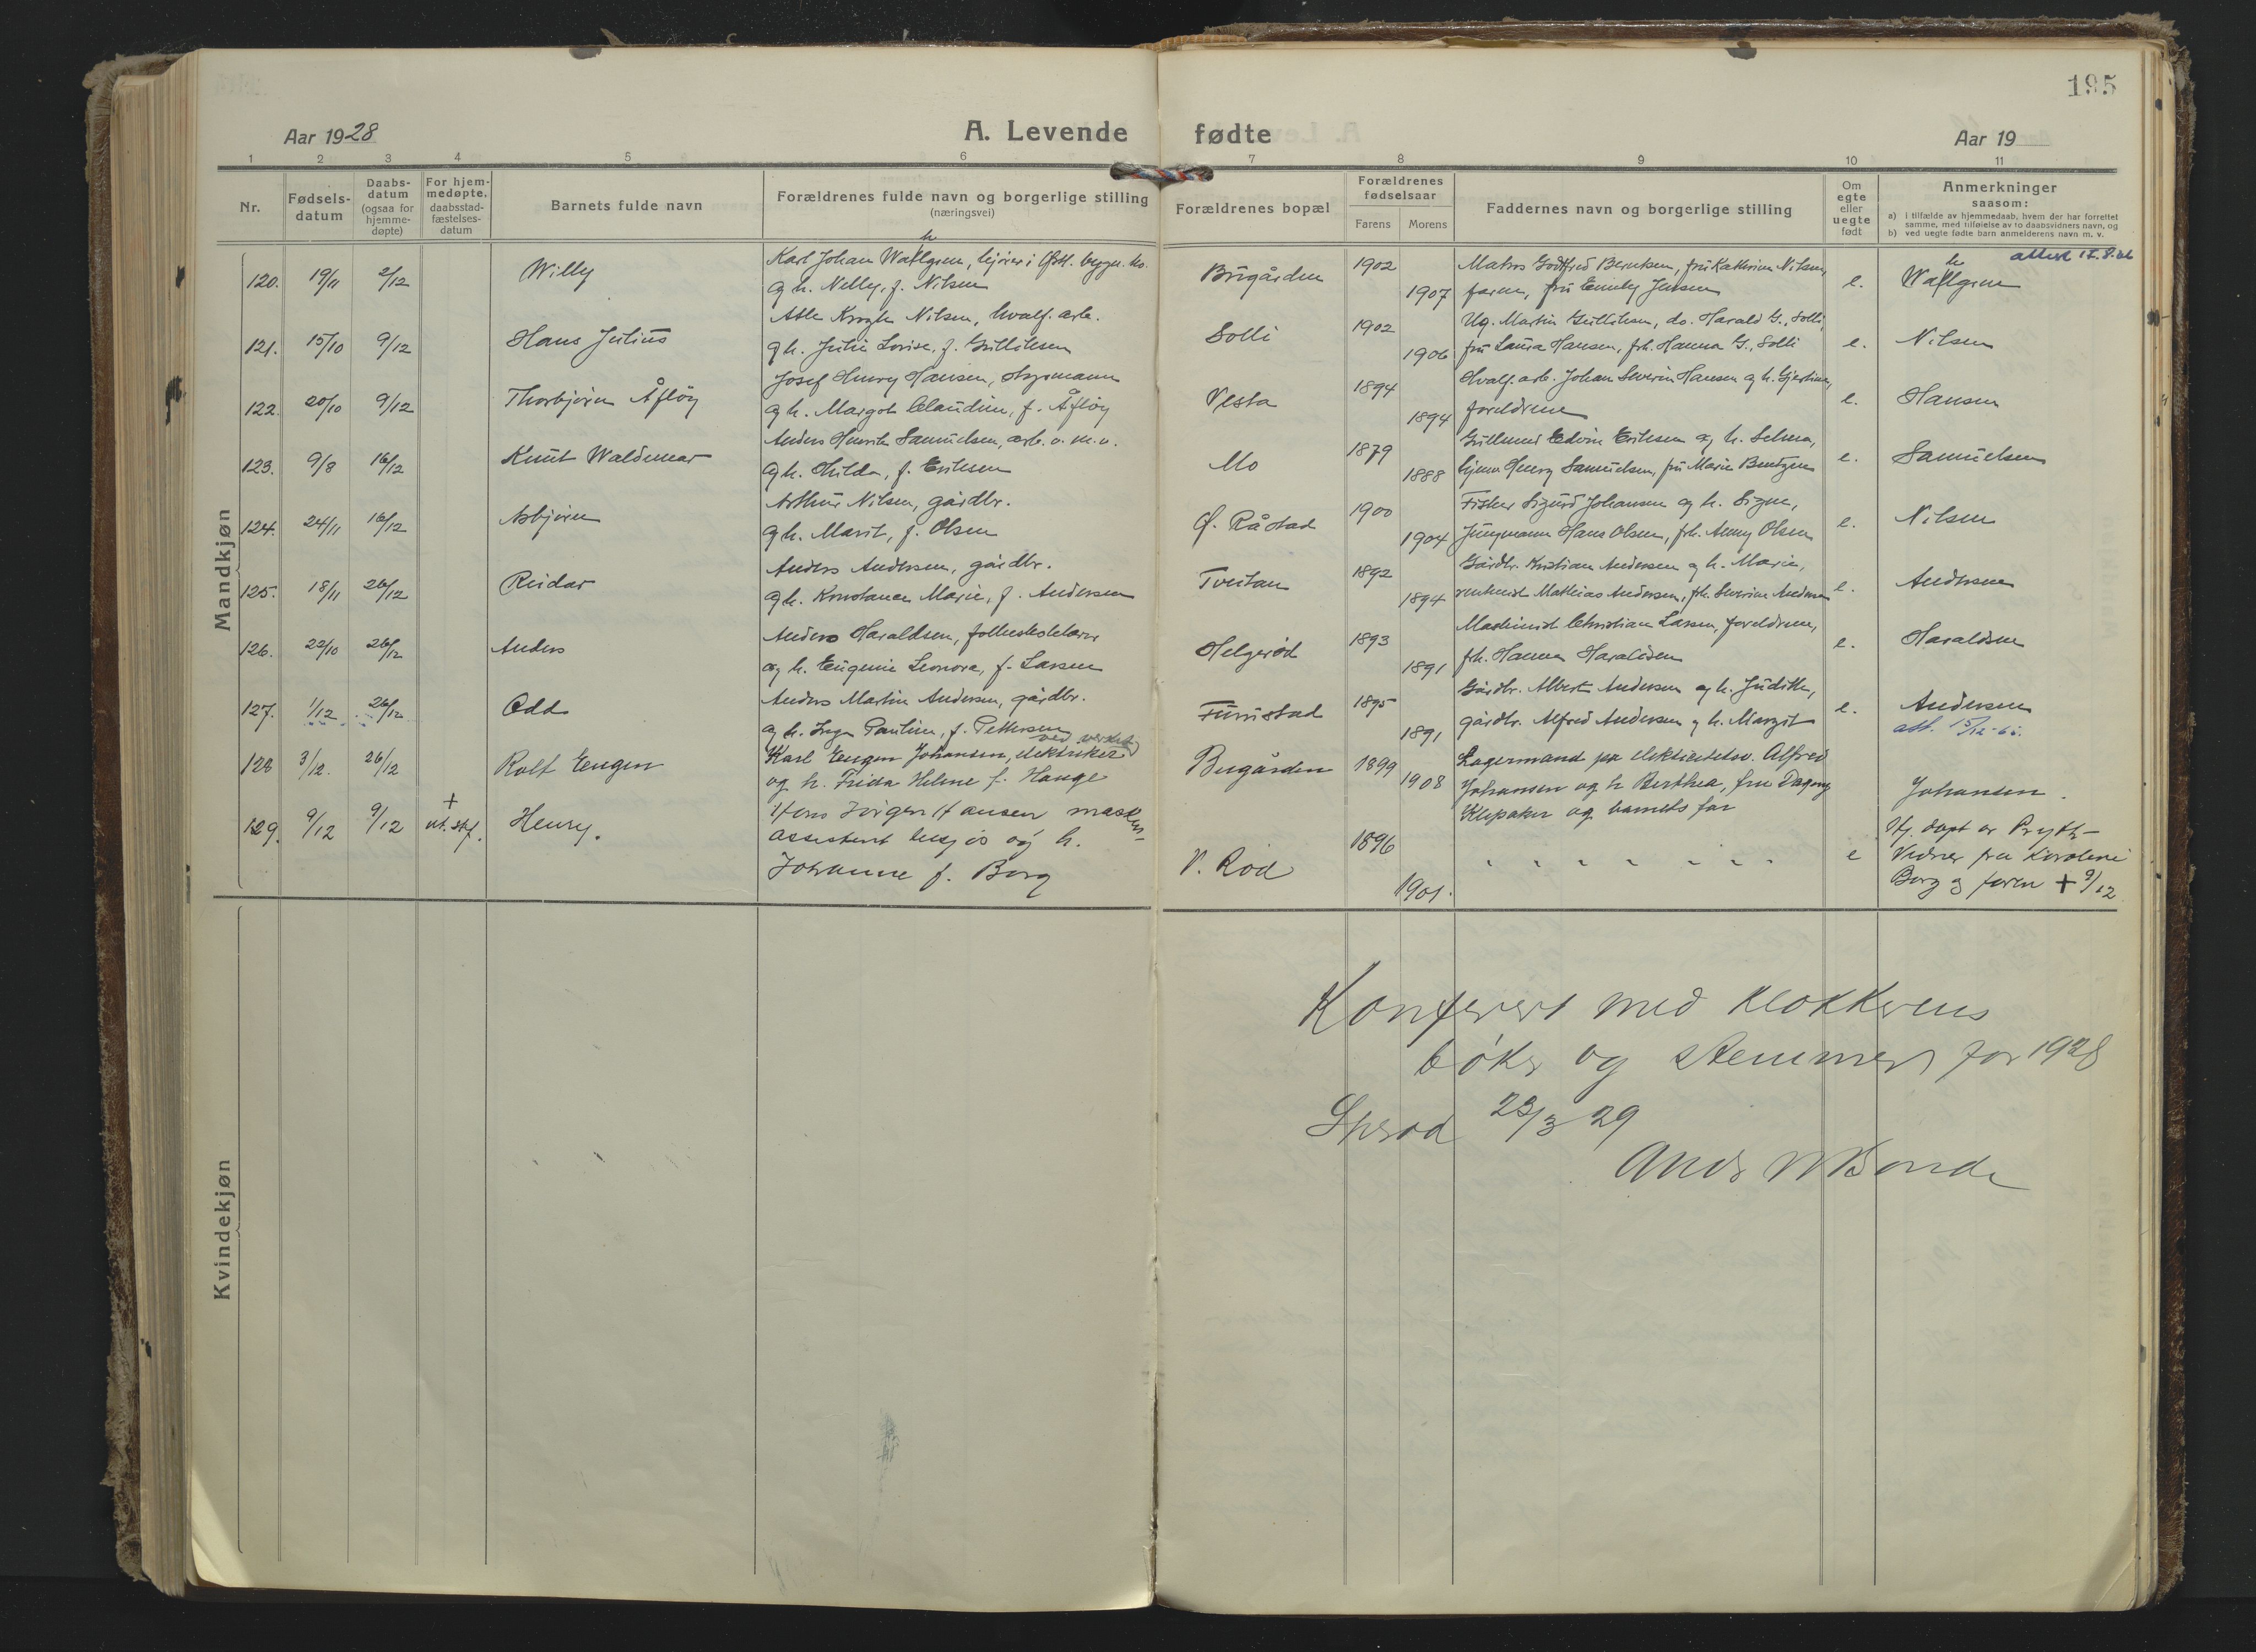 195
Aar 1928
A. Levende fødte
Aar 19
1 2 3 4 5 6 7 8 9 10 11
Nr.
Fødsels-
datum
Daabs-
datum
(ogsaa for
hjemme-
døpte)
For hjem-
medøpte.
daabsstad-
fæstelses-
datum
Barnets fulde navn
Forældrenes fulde navn og borgerlige stilling
(næringsvei)
Forældrenes bopæl
Forældrenes
fødselsaar
Farens Morens
Faddernes navn og borgerlige stilling
Om
egte
eller
uegte
født
Anmerkninger
saasom:
a) i tilfælde av hjemmedaab, hvem der har forrettet
samme, med tilføielse av to daabsvidners navn, og
b) ved uegte fødte barn anmelderens navn m. v.
Mandkjøn
120. 19/11 2/12 Willy
Karl Johan Wahlgren, hjører i Østl. bygn. ko.
og h. Nelly, f. Nilsen
Bugården 1902 1907
Matros Godtfred Berntsen, fru Kathrine Nilsen,
faren, fru Emily Jensen
e. Wahlgren
121. 15/10 9/12 Hans Julius
Atle Krogh Nilsen, hvalf. arb.
og h. Julie Lovise, f. Gulliksen
Solli 1902 1906
Ug. Martin Gulliksen, do. Harald G., Solli,
fru Laura Hansen, frk. Hanna G., Solli
e. Nilsen
122. 20/10 9/12 Thorbjørn Åfløy
Josef Henry Hansen, styrmann
og h. Margot Claudine, f. Åfløy
Vesta 1894 1894
Hvalf. arb. Johan Severin Hansen og h. Gjertine,
foreldrene
e. Hansen
123. 9/8 16/12 Knut Waldemar
Anders Henrik Samuelsen, arb. v. m. v.
og h. Hilda, f. Eriksen
Mo 1879 1888
Gullmed Edvin Eriksen og h. Selma,
Henry Samuelsen, fru Marie Bentzen
e. Samuelsen
124. 24/11 16/12 Asbjørn
Arthur Nilsen, gårdbr.
og h. Marit, f. Olsen
Ø. Råstad 1900 1904
Fisker Sigurd Johansen og h. Signe,
Jungmann Hans Olsen, frk. Anny Olsen
e. Nilsen
125. 18/11 26/12 Reidar
Anders Andersen, gårdbr.
og h. Konstance Marie, f. Andersen
Tveitan 1892 1894
Gårdbr. Kristian Andersen og h. Marie,
rentenist Mathias Andersen, frk. Severine Andersen
e. Andersen
126. 22/10 26/12 Anders
Anders Haraldsen, folkeskolelærer
og h. Eugenie Leonora, f. Larsen
Helgerød 1893 1891
Maskinist Christian Larsen, foreldrene,
frk. Hanna Haraldsen
e. Haraldsen
127. 1/12 26/12 Odd
Anders Martin Andersen, gårdbr.
og h. Inga Pauline, f. Pettersen
Furustad 1895 1891
Gårdbr. Albert Andersen og h. Judith,
gårdbr. Alfred Andersen og h. Margit
e. Andersen
att. 15/12-65.
128 3/12. 26/12 Rolf Eugen
Karl Eugen Johansen, elektriker
og h. Frida Helene f. Hauge
Bugården 1899 1908
Lagermand pa elektisitetsv. Alfred
Johansen og h Berthea, fru Dagny
Klepaker og barnets far
Johansen.
129. 9/12 9/12 + ut. stf. Henry.
Hans Jørgen Hansen maskin-
assistent og h.
Johanne f. Borg
V. Rød 1896 1901.
e
Hj. døpt av Prytz-
Vidner fru Karoline
Borg og faren + 9/12
Kvindekjøn
Konferert med Klokkerens
bøker og stemmer for 1928
23/3 29
Ands M Bonde